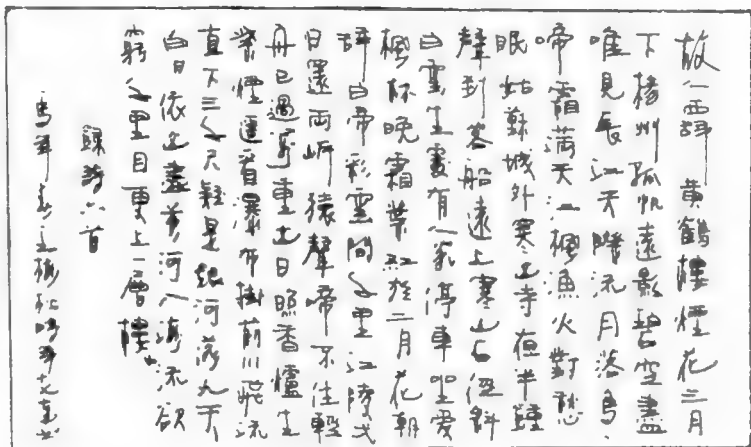 故人西辞黄鶴樓煙花三月
下楊州孤帆遠影碧空盡
唯見長江天際流月落烏
啼霜滿天江楓漁火對愁
眠姑蘇城外寒山寺夜半鐘
聲到客船遠上寒山石徑斜
白雲生處有人家停車坐愛
楓林晚霜葉紅於二月花朝
辞白帝彩雲間千里江陵弌
日還兩岸猿聲啼不住輕
舟已過萬重山日照香爐生
紫煙遥看瀑布掛前川飛流
直下三千尺疑是銀河落九天
白日依山盡黄河入海流欲
窮千里目更上一層樓
録詩六首